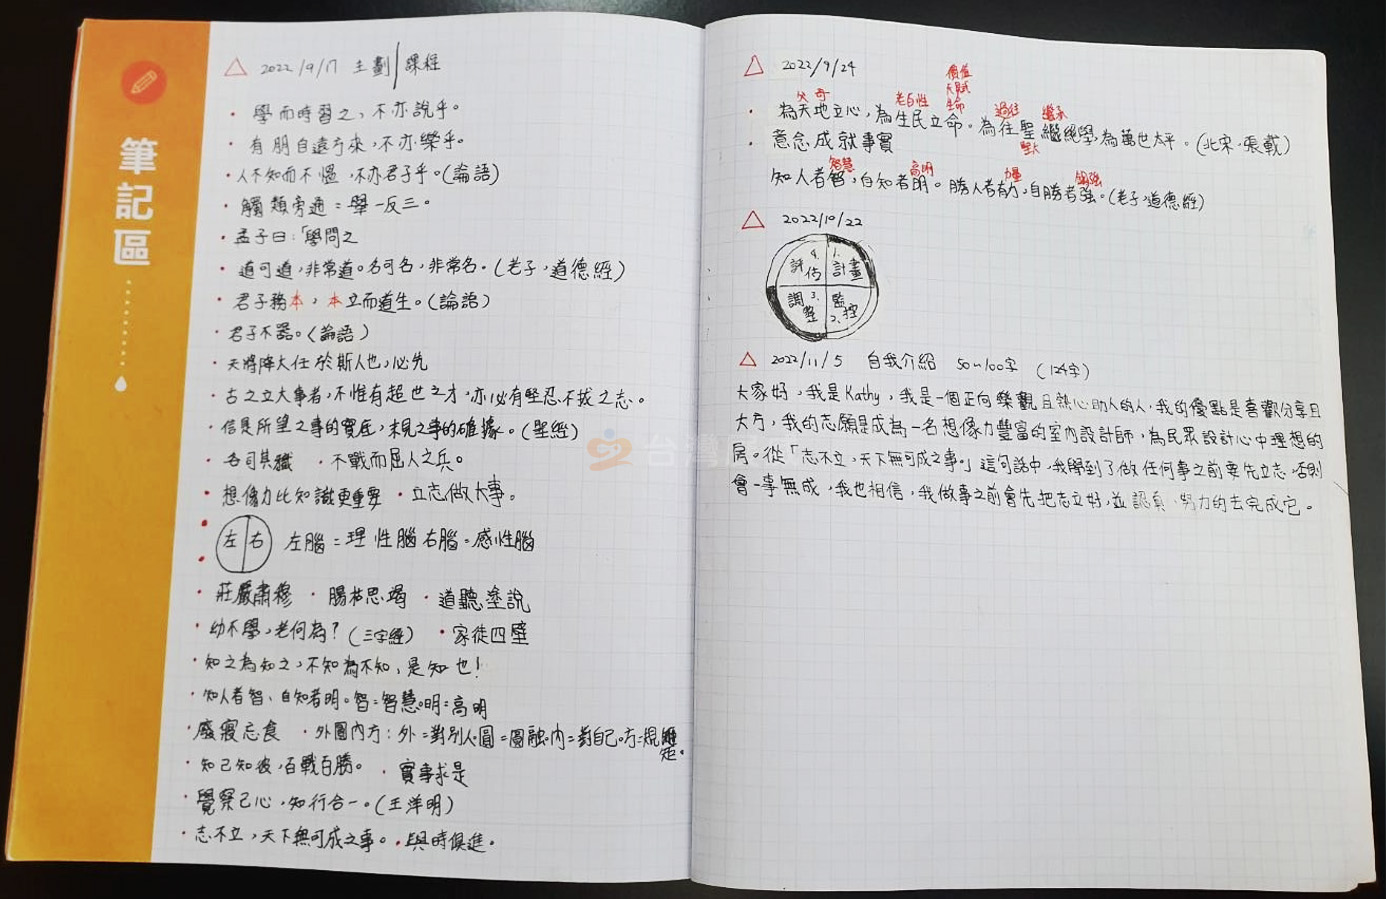 筆記區
△ 2022/9/17 主劃/課程
· 學而時習之，不亦說乎。
· 有朋自遠方來，不亦樂乎。
· 人不知而不慍，不亦君子乎。(論語)
· 觸類旁通=舉一反三。
· 孟子曰:「學問之
· 道可道，非常道。名可名，非常名。(老子，道德經)
· 君子務本，本立而道生。(論語)
· 君子不器。(論語)
· 天將降大任於斯人也，必先
· 古之立大事者，不惟有超世之才，亦必有堅忍不拔之志。
· 信是所望之事的實底，未見之事的確據。(聖經)
· 各司其職 · 不戰而屈人之兵。
· 想像力比知識更重要 · 立志做大事。
左 右 左腦=理性腦 右腦=感性腦
· 莊嚴肅穆 · 腸枯思竭 · 道聽塗說
· 幼不學，老何為?(三字經) · 家徒四壁
· 知之為知之，不知為不知，是知也!
· 知人者智、自知者明。智=智慧。明=高明
· 廢寢忘食 · 外圓內方:外=對別人。圓=圓融。內=對自己。方=規矩。
· 知己知彼，百戰百勝。 · 實事求是
· 覺察己心，知行合一。(王洋明)
· 志不立，天下無可成之事。 · 與時俱進。
△ 2022/9/24
價值
天賦
老百姓 生命 過往 繼承
· 為天地立心，為生民立命。為往聖繼絕學，為萬世太平。(北宋，張載)
· 意念成就事實
智慧 高明 力量 剛強
知人者智，自知者明。勝人者有力，自勝者強。(老子，道德經)
△ 2022/10/22
4. 評估 1. 計畫
調整 3. 監控 2.
△ 2022/11/5 自我介紹 50~100字 (124字)
大家好，我是Kathy，我是一個正向樂觀且熱心助人的人，我的優點是喜歡分享且
大方，我的志願是成為一名想像力豐富的室內設計師，為民眾設計心中理想的
房。從「志不立，天下無可成之事。」這句話中，我學到了做任何事之前要先立志，否則
會一事無成，我也相信，我做事之前會先把志立好，並認真、努力的去完成它。